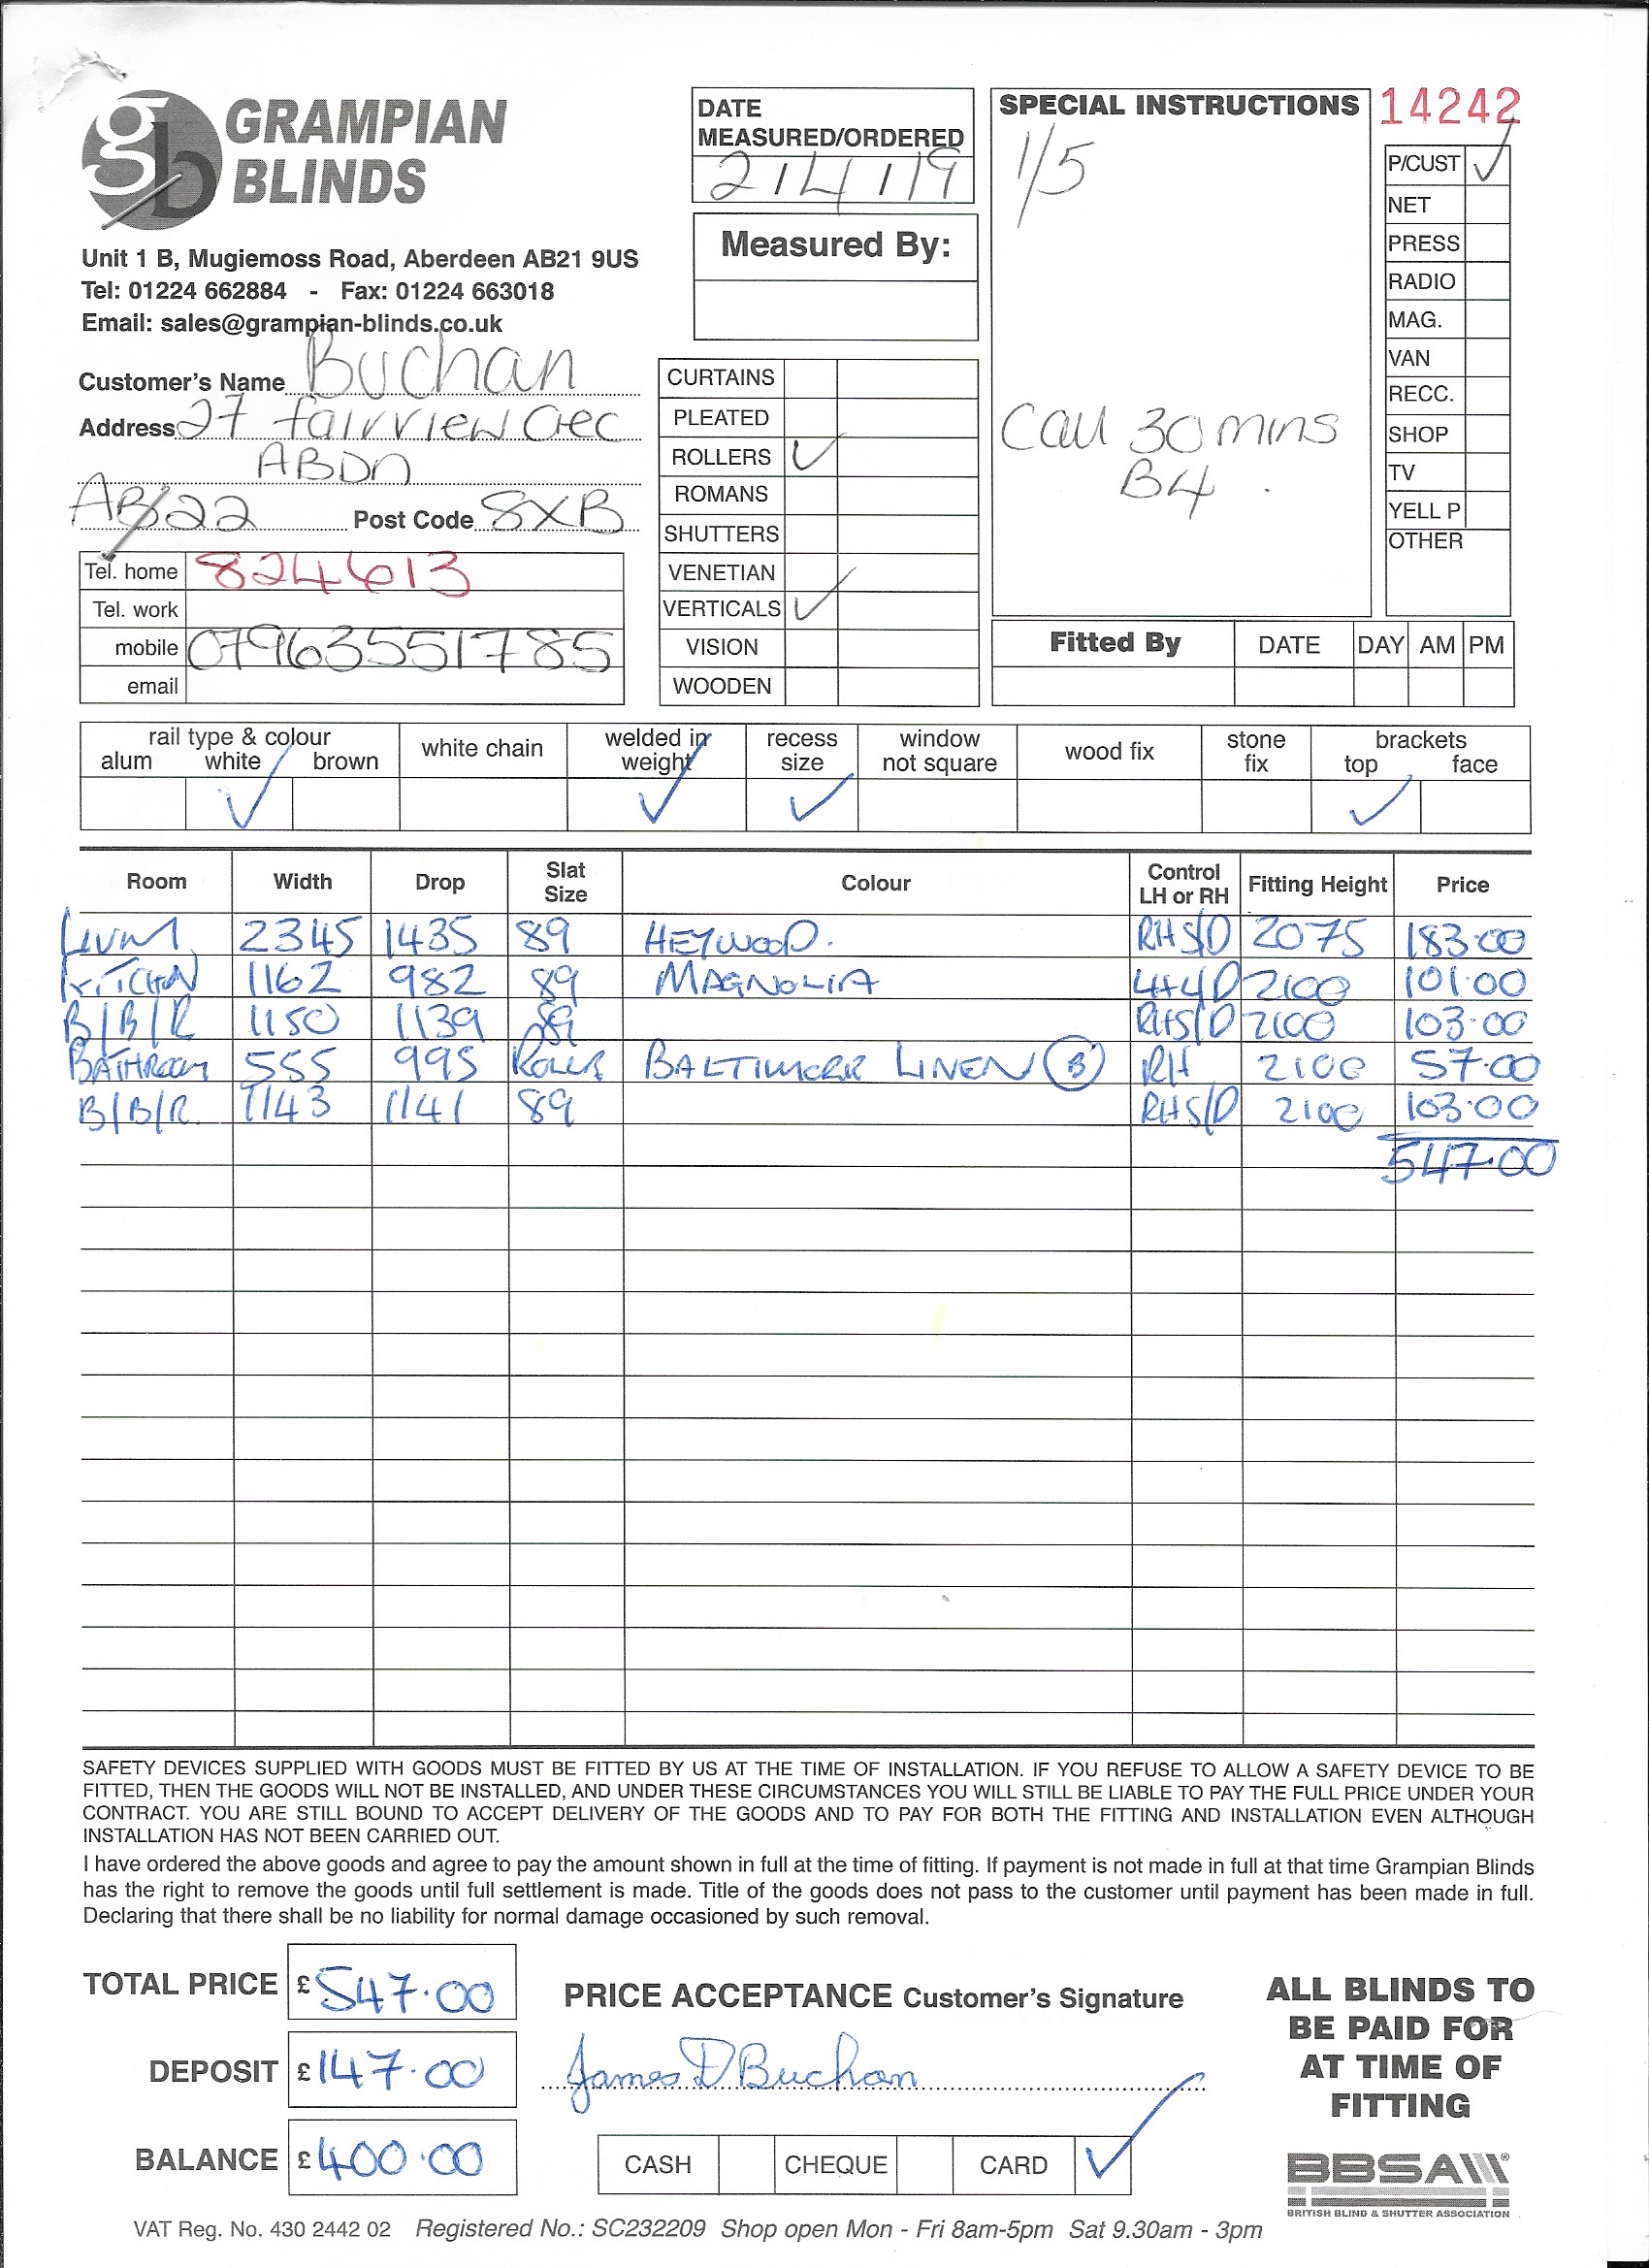 gb GRAMPIAN BLINDS
DATE MEASURED/ORDERED
2/4/19
SPECIAL INSTRUCTIONS
1/5
Call 30 mins
B4.
14242
P/CUST ✓
NET
PRESS
RADIO
MAG.
VAN
RECC.
SHOP
TV
YELL P
OTHER
Unit 1 B, Mugiemoss Road, Aberdeen AB21 9US
Tel: 01224 662884 - Fax: 01224 663018
Email: sales@grampian-blinds.co.uk
Measured By:
Customer's Name Buchan
Address 27 fairview Crec
ABDN
AB22 Post Code 8XB
Tel. home 824613
Tel. work
mobile 07963551785
email
CURTAINS
PLEATED
ROLLERS ✓
ROMANS
SHUTTERS
VENETIAN
VERTICALS ✓
VISION
WOODEN
Fitted By DATE DAY AM PM
rail type & colour
alum white ✓ brown
white chain
welded in weight ✓
recess size ✓
window not square
wood fix
stone fix
brackets
top ✓ face
Room Width Drop Slat Size Colour Control LH or RH Fitting Height Price
2345 1435 89 HEYWOOD. RHS/D 2075 183.00
KITCHN 1162 982 89 MAGNOLIA 2100 101.00
B/B/R 1150 1139 89 RHS/D 2100 103.00
BATHROOM 555 995 ROLLER BALTIMORE LINEN (B) RH 2100 57.00
B/B/R. 1143 1141 89 RHS/D 2100 103.00
547.00
SAFETY DEVICES SUPPLIED WITH GOODS MUST BE FITTED BY US AT THE TIME OF INSTALLATION. IF YOU REFUSE TO ALLOW A SAFETY DEVICE TO BE
FITTED, THEN THE GOODS WILL NOT BE INSTALLED, AND UNDER THESE CIRCUMSTANCES YOU WILL STILL BE LIABLE TO PAY THE FULL PRICE UNDER YOUR
CONTRACT. YOU ARE STILL BOUND TO ACCEPT DELIVERY OF THE GOODS AND TO PAY FOR BOTH THE FITTING AND INSTALLATION EVEN ALTHOUGH
INSTALLATION HAS NOT BEEN CARRIED OUT.
I have ordered the above goods and agree to pay the amount shown in full at the time of fitting. If payment is not made in full at that time Grampian Blinds
has the right to remove the goods until full settlement is made. Title of the goods does not pass to the customer until payment has been made in full.
Declaring that there shall be no liability for normal damage occasioned by such removal.
TOTAL PRICE £547.00
DEPOSIT £147.00
BALANCE £400.00
PRICE ACCEPTANCE Customer's Signature
James D Buchan
CASH CHEQUE CARD ✓
ALL BLINDS TO
BE PAID FOR
AT TIME OF
FITTING
BBSA
BRITISH BLIND & SHUTTER ASSOCIATION
VAT Reg. No. 430 2442 02 Registered No.: SC232209 Shop open Mon - Fri 8am-5pm Sat 9.30am - 3pm